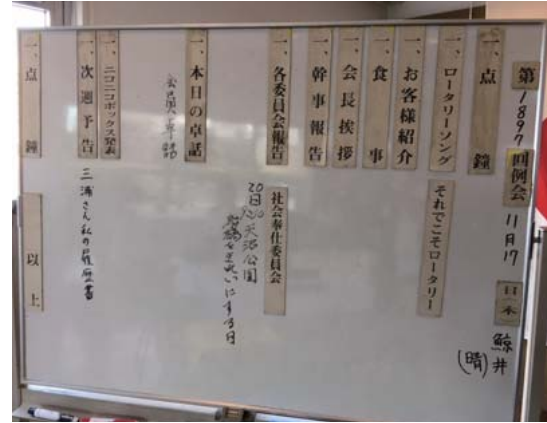 第1897回例会 11月17日(木) 鯨井(晴)
一、点鐘
一、ロータリーソング それでこそロータリー
一、お客様紹介
一、食事
一、会長挨拶
一、幹事報告
一、各委員会報告 社会奉仕委員会
20日 天沼公園
船橋をきれいにする日
一、本日の卓話
一、ニコニコボックス発表
一、次週予告 三浦さん私の履歴書
一、点鐘 以上